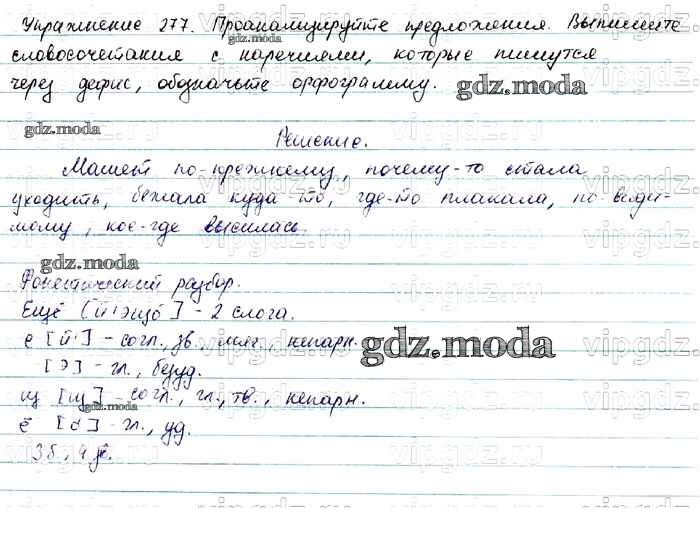 Упражнение 277. Проанализируйте предложения. Выпишите
словосочетания с наречиями, которые пишутся
через дефис, обозначьте орфограмму.
gdz.moda
gdz.moda
gdz.moda
Решение.
Машет по-прежнему, почему-то стала
уходить, бежала куда-то, где-то плакала, по-види-
мому, кое-где высилась.
gdz.moda
Фонетический разбор.
Ещё [й'эщо́] - 2 слога.
е [й'] - согл., зв., мяг., непарн.
gdz.moda
[э] - гл., безуд.
щ [щ] - согл., гл., тв., непарн.
gdz.moda
ё [о́] - гл., уд.
3б, 4
vipgdz.ru